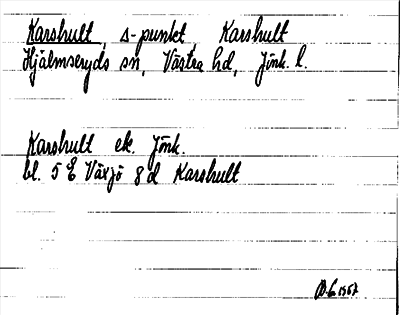 Karshult, s-punkt, Karshult
Hjälmseryds sn, Västra hd, Jönk. l.
Karshult ek. Jönk.
bl. 5 E Växjö 8 d Karshult